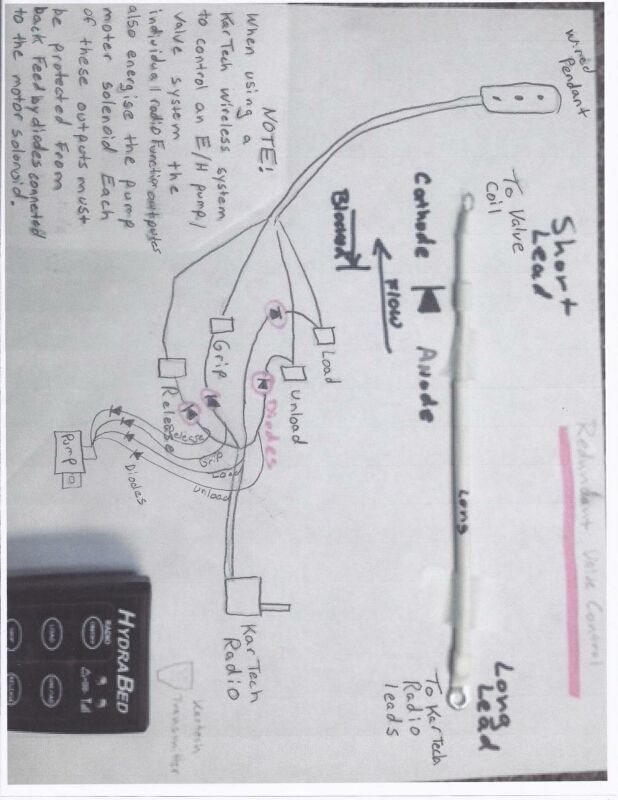 Redundant Valve Control
Wired
Pendant
Short
Lead
To Valve
Coil
Cathode
Anode
Long
Long
Lead
To KarTech
Radio
leads
Flow
Blocked
Load
Unload
Grip
Release
Diodes
Unload
Diodes
Pump
KarTech
Radio
Kartech
Transmitter
NOTE!
When using a
KarTech Wireless system
to control an E/H pump/
valve system the
individual radio Function outputs
also energise the pump
moter solenoid Each
of these outputs must
be protected From
back Feed by diodes connected
to the motor solonoid.
HYDRABED
RADIO